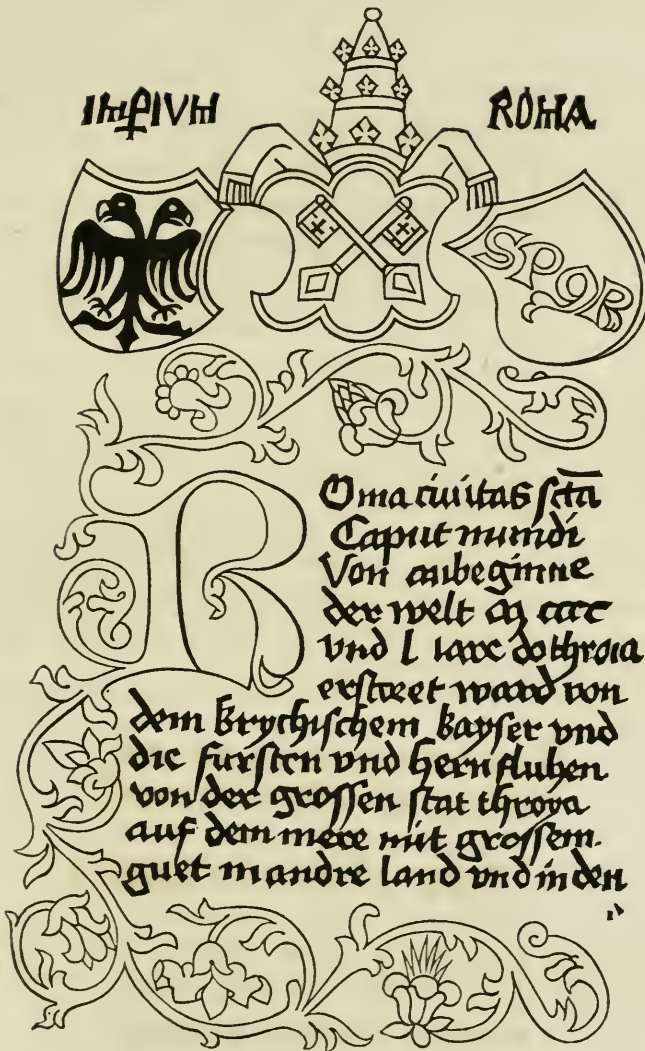 IMPIVM
ROMA
SPQR
Roma ciuitas scta
Caput mundi
Von anbeginne
der welt M cccc
vnd l iare do throia
erstoret ward von
dem krychischem kayser vnd
die fursten vnd hern fluhen
von der grossen stat throya
auf dem mere mit grossem
guet in andre land vnd in den